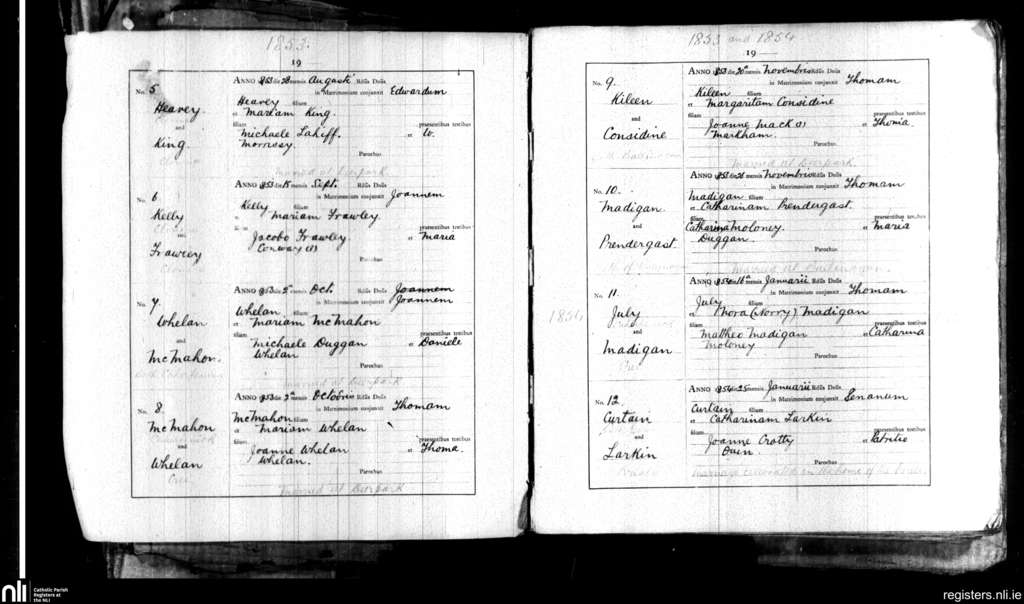 1853.
19
No. 5
Heavey
and
King
ANNO 1853 die 28 mensis August Rdûs Dnûs
in Matrimonium conjunxit Edwardum
Heavey filium
et Mariam King.
filiam
praesentibus testibus
Michaele Lahiff. et W.
Morrissy.
Parochus
married at Deerpark
No. 6
Kelly
and
Frawley
ANNO 1853 die 15 mensis Sept. Rdûs Dnûs
in Matrimonium conjunxit Joannem
Kelly filium
et Mariam Frawley.
filiam
praesentibus testibus
Jacobo Frawley et Maria
Conway (s)
Parochus
No. 7
Whelan
and
McMahon.
ANNO 1853 die 2 mensis Oct. Rdûs Dnûs Joannem
in Matrimonium conjunxit Joannem
Whelan filium
et Mariam McMahon
filiam
praesentibus testibus
Michaele Duggan et Daniele
Whelan
Parochus
married at Deerpark
No. 8.
McMahon
and
Whelan
Cree
ANNO 1853 die 2 mensis Octobris Rdûs Dnûs
in Matrimonium conjunxit Thomam
McMahon filium
et Mariam Whelan
filiam
praesentibus testibus
Joanne Whelan et Thoma.
Whelan.
Parochus
married at Deerpark
1853 and 1854
19
No. 9.
Kileen
and
Considine
ANNO 1853 die 20 mensis Novembris Rdûs Dnûs
in Matrimonium conjunxit Thomam
Kileen filium
et Margaritam Considine
filiam
praesentibus testibus
Joanne Mack (s) et Thoma
Markham.
Parochus
married at Deerpark.
No. 10.
Madigan
and
Prendergast.
ANNO 1853 die 26 mensis Novembris Rdûs Dnûs
in Matrimonium conjunxit Thomam
Madigan filium
et Catharinam Prendergast.
filiam
praesentibus testibus
Catharina Moloney. et Maria
Duggan.
Parochus
married at
1854
No. 11.
July
and
Madigan
Cree
ANNO 1854 die 16 mensis Januarii Rdûs Dnûs
in Matrimonium conjunxit Thomam
July filium
et Nora (Norry) Madigan
filiam
praesentibus testibus
Mattheo Madigan et Catharina
Moloney
Parochus
No. 12.
Curtain
and
Larkin
ANNO 1854 die 25 mensis Januarii Rdûs Dnûs
in Matrimonium conjunxit Senanum
Curtain filium
et Catharinam Larkin
filiam
praesentibus testibus
Joanne Crotty et Patritio
Quin.
Parochus
marriage celebrated in the home of the
nli
Catholic Parish
Registers at
the NLI
registers.nli.ie